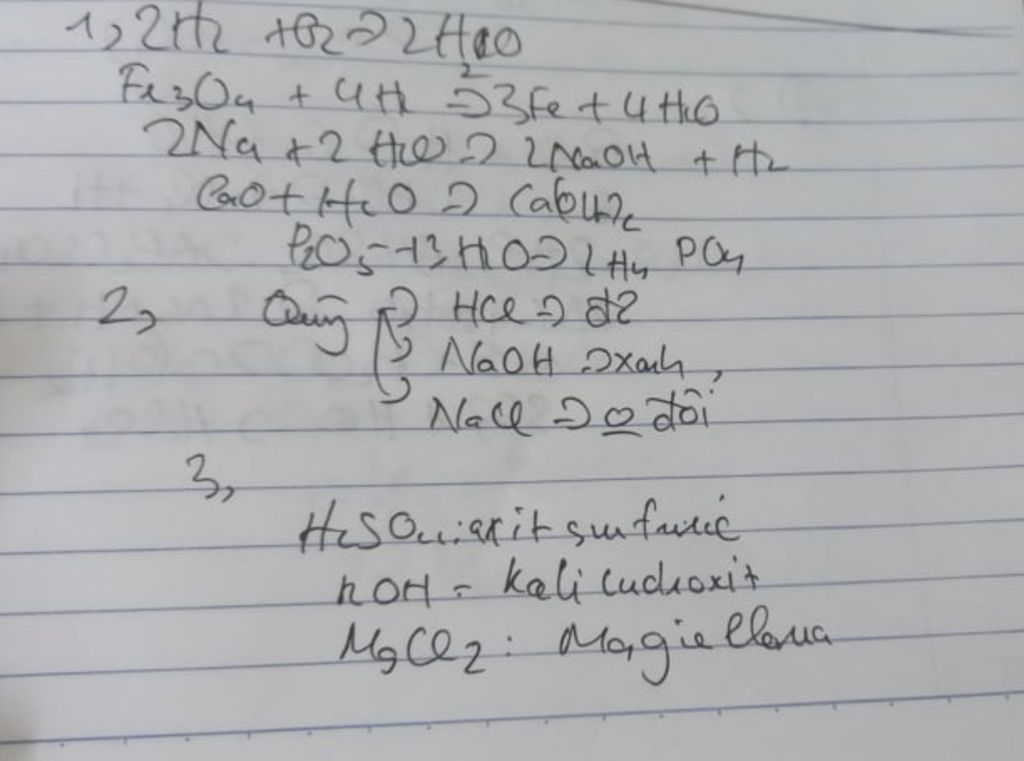 1, 2H2 + O2 => 2H2O
Fe3O4 + 4H2 => 3Fe + 4H2O
2Na + 2H2O => 2NaOH + H2
CaO + H2O => Ca(OH)2
P2O5 + 3H2O => 2H3PO4
2, Quỳ => HCl => đỏ
NaOH => xanh,
NaCl => o đổi
3,
H2SO4: axit sunfuric
KOH = kali hidroxit
MgCl2: Magie clorua